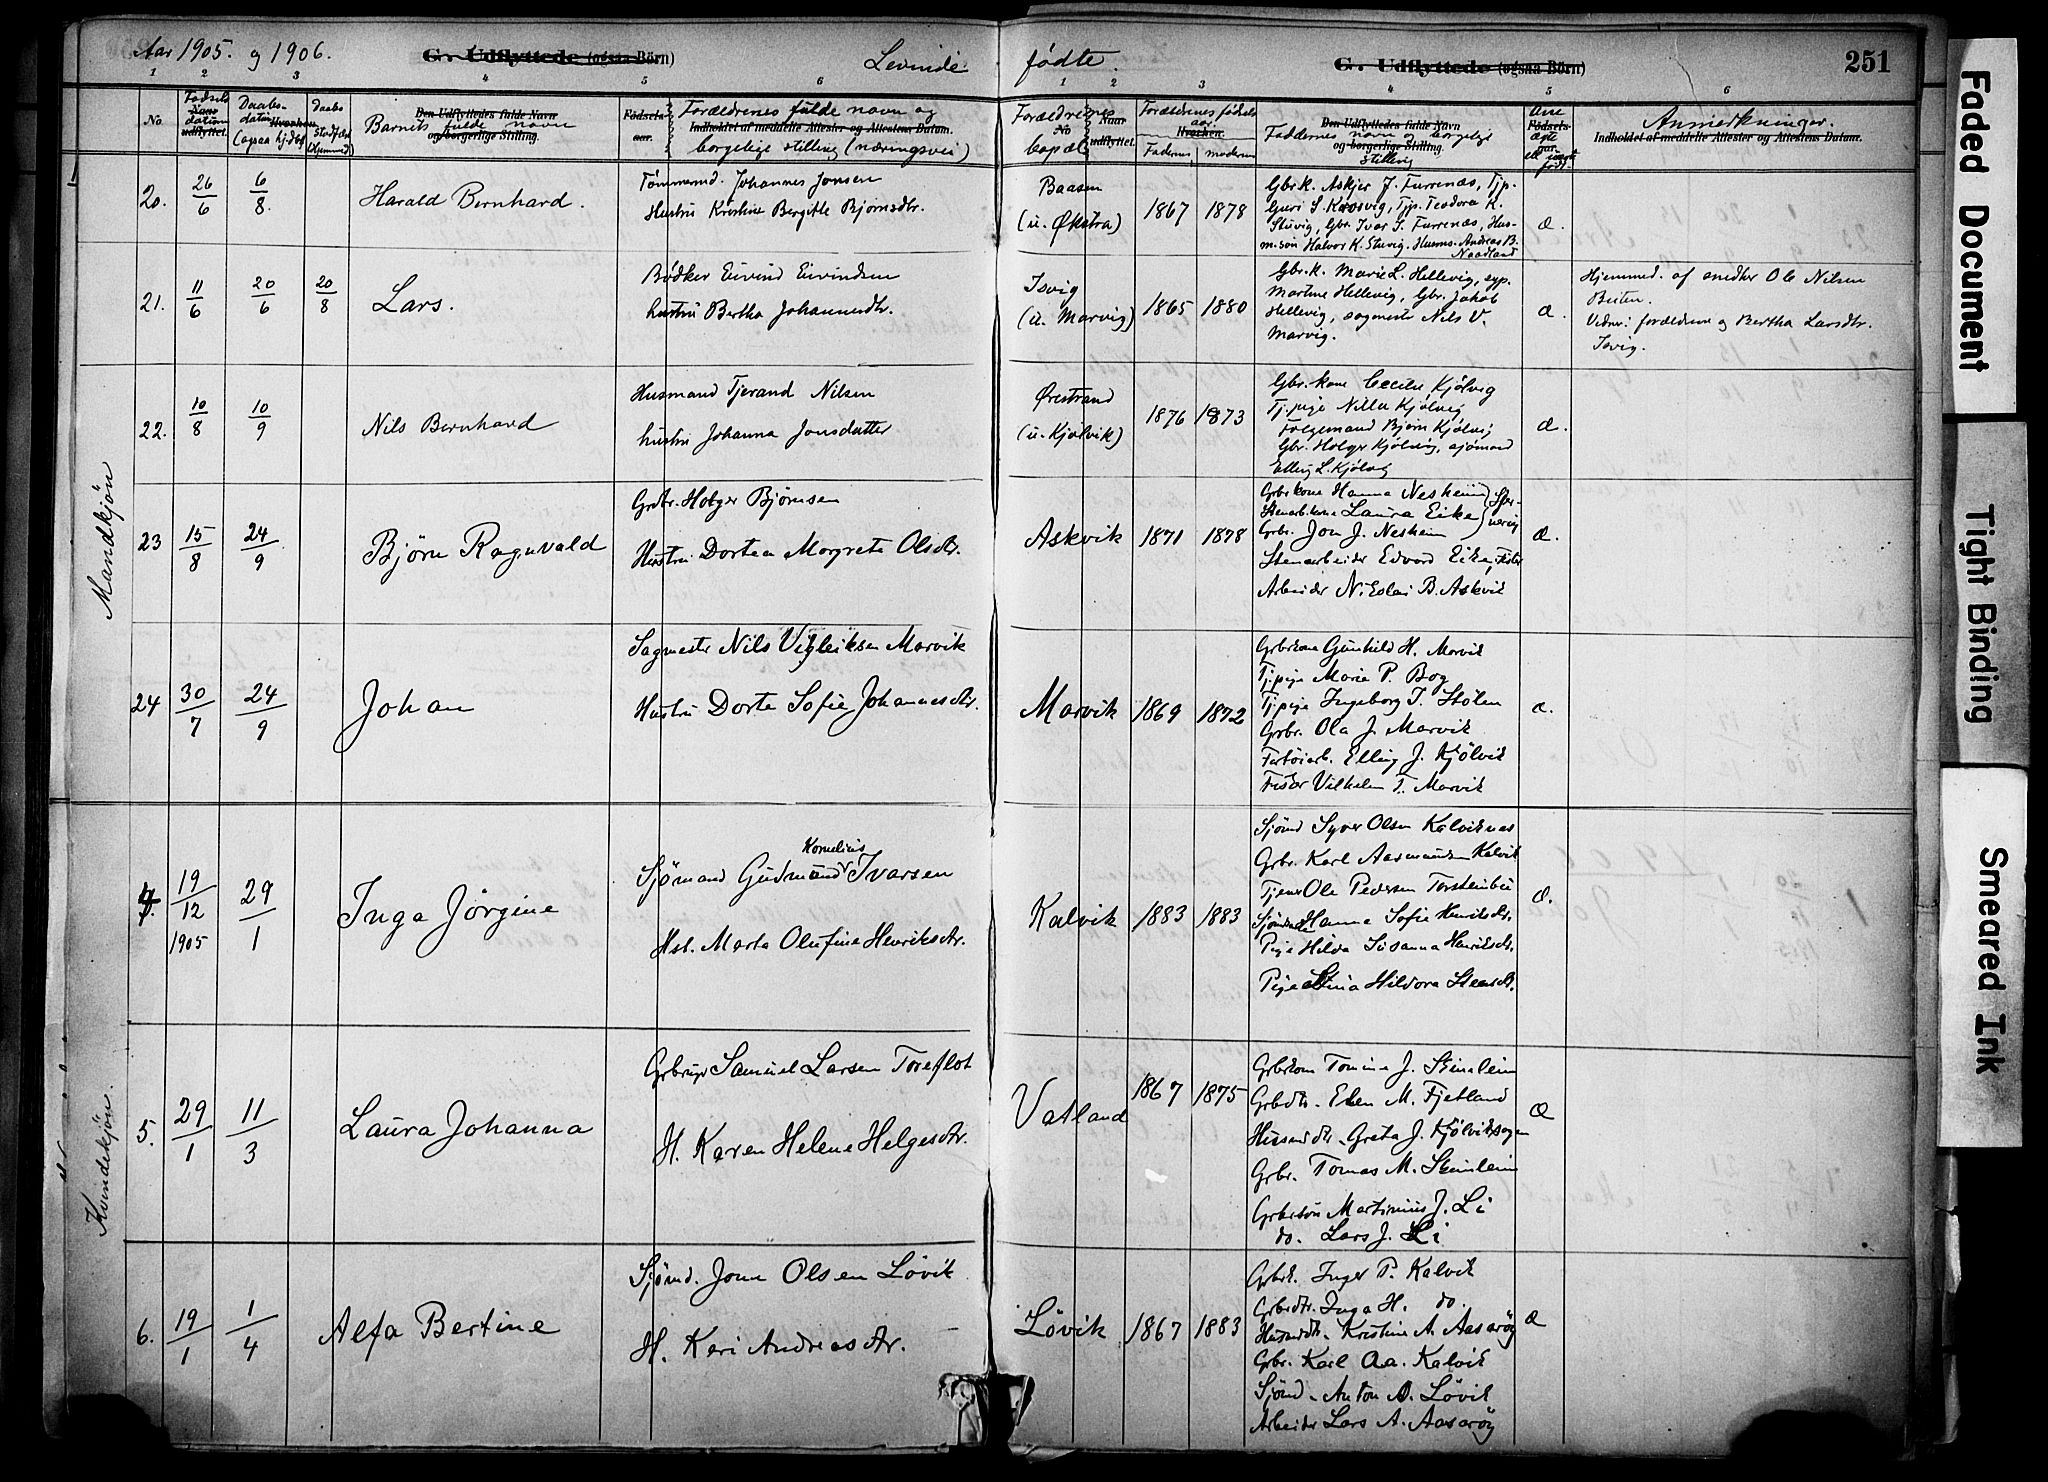 Aar 1905. og 1906.
G. Udflyttede (ogsaa Börn)
Levende fødte.
G. Udflyttede (ogsaa Börn)
251
1 2 3 4 5 6
1 2 3 4 5 6
No.
Fødselsdatum
udflyttet.
Daabsdatum
(ogsaa hjdbt)
Daabsstadfæst
(hjemmed)
Den Udflyttedes fulde Navn
og borgerlige Stilling.
Barnets fulde navn
Fødsels-
aar.
Forældrenes fulde navn og
Indholdet af meddelte Attester og Attestens Datum.
borgelige stilling (næringsvei)
Forældrenes
No
bopæl
Naar
udflyttet.
Forældrenes fødselsaar
Hvorhen.
Faderens
moderens
Den Udflyttedes fulde Navn
Faddernes navn og borgelige
og borgerlige Stilling.
stilling
Fødsels-
Anmerkninger.
Indholdet af meddelte Attester og Attestens Datum.
Mandkjön
20.
26/6
6/8.
Harald Bernhard.
Tømmermd. Johannes Jonsen
Hustru Kristine Bergitte Bjørnsdtr.
Baasen
(u. Økstra)
1867
1878
Gbr.k. Askjer J. Furrenæs, Tjp.
Guri S. Krosvig, Tjp. Teodora K.
Stuvig, Gbr. Ivar I. Furrenæs, Hus-
m.søn Halvor K. Stuvig. Husms. Andreas B.
Naadland
æ.
21.
11/6
20/6
20/8
Lars.
Bødker Eivind Eivindsen
hustru Bertha Johannesdtr.
Isvig
(u. Marvig)
1865
1880
Gbr.k. Marie L. Hellevig, syp.
Martine Hellevig, Gbr. Jakob
Hellevig, sagmester Nils V.
Marvig.
æ.
Hjemmed. af snedker Ole Nilsen
Vidner: forældrene og Bertha Larsdtr.
Isvig.
22.
10/8
10/9
Nils Bernhard
Husmand Tjerand Nilsen
hustru Johanna Jonsdatter
Ørestrand
(u. Kjølvik)
1876
1873
Gbr. kone Cecilie Kjölvig
Tj.pige Nilla Kjölvig
Følgemand Bjørn Kjölvig
Gbr. Holger Kjölvig, sjömand
Elling L. Kjölvig
æ.
23
15/8
24/9
Bjørn Ragnvald
Grdbr. Holger Bjørnsen
Hustru Dortea Margrete Olsdtr.
Askvik
1871
1878
Grbrkone Hanna Nesheim
Stenarb.kone Laura Eike
Grbr. Jon J. Nesheim
Stenarbeider Edvard Eike, Fister
Arbeider Nikolai B. Askvik
æ.
24
30/7
24/9
Johan
Sagmester Nils Vigleiksen Marvik
Hustru Dorte Sofie Johannesdtr.
Marvik
1869
1872
Grbrkone Gunhild H. Marvik
Tj.pige Marie P. Bog
Tj.pige Ingeborg T. Stölen
Grbr. Ola J. Marvik
Fartöiarb. Elling J. Kjölvik
Fisker Vilhelm T. Marvik
æ.
Kvindekjön.
4.
19/12
1905
29/1
Inga Jörgine
Kornelius
Sjömand Gudmund Ivarsen
Hst. Marta Olufine Henriksdtr.
Kalvik
1883
1883
Sjömd Syver Olsen Kalviknes
Grbr. Karl Aasmundsen Kalvik
Tjener Ole Pedersen Torsteinbu
Hanna Sofie Henriksdtr.
Pige Hilda Susanna Henriksdtr.
Pige Stina Hildora Steensdtr.
æ.
5.
29/1
11/3
Laura Johanna
Grbruger Samuel Larsen Toreflot
H. Karen Helene Helgesdtr.
Vatland
1867
1875
Grbrkone Tomine J. Steinslein
Grbrdtr. Elen M. Fjetland
Husmdtr. Greta J. Kjölviksagen
Grbr. Tomas M. Steinslein
Grbrsön Martinius J. Li
do. Lars J. Li
Æ
6.
19/1
1/4
Alfa Bertine
Sjömd. Jonn Olsen Lövik
H. Kari Andreasdtr.
Lövik
1867
1883
Grbrk. Inger P. Kalvik
Grbrdtr. Inga H. do.
Husmdtr. Kristine A. Aasaröy
Grbr. Karl Aa. Kalvik
Sjömd. Anton O. Lövik
Arbeider Lars A. Aasaröy
Æ
Faded Document
Tight Binding
Smeared Ink